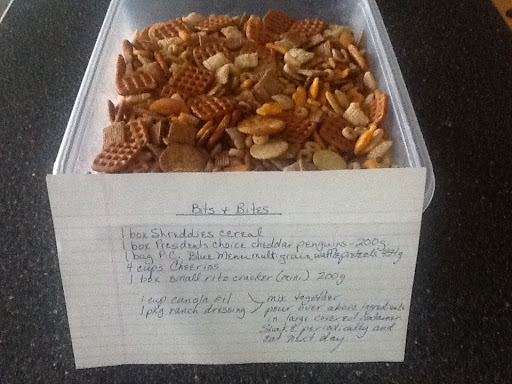 Bits & Bites
1 box Shreddies cereal
1 box Presidents choice cheddar penguins - 200g
1 bag P.C. Blue Menu multigrain waffle pretzels
4 cups Cheerios
1 box small ritz cracker (mini) 200g
1 cup canola oil
1 pkg ranch dressing
mix together
pour over above ingredients
in large covered container
Shake periodically and
eat next day.